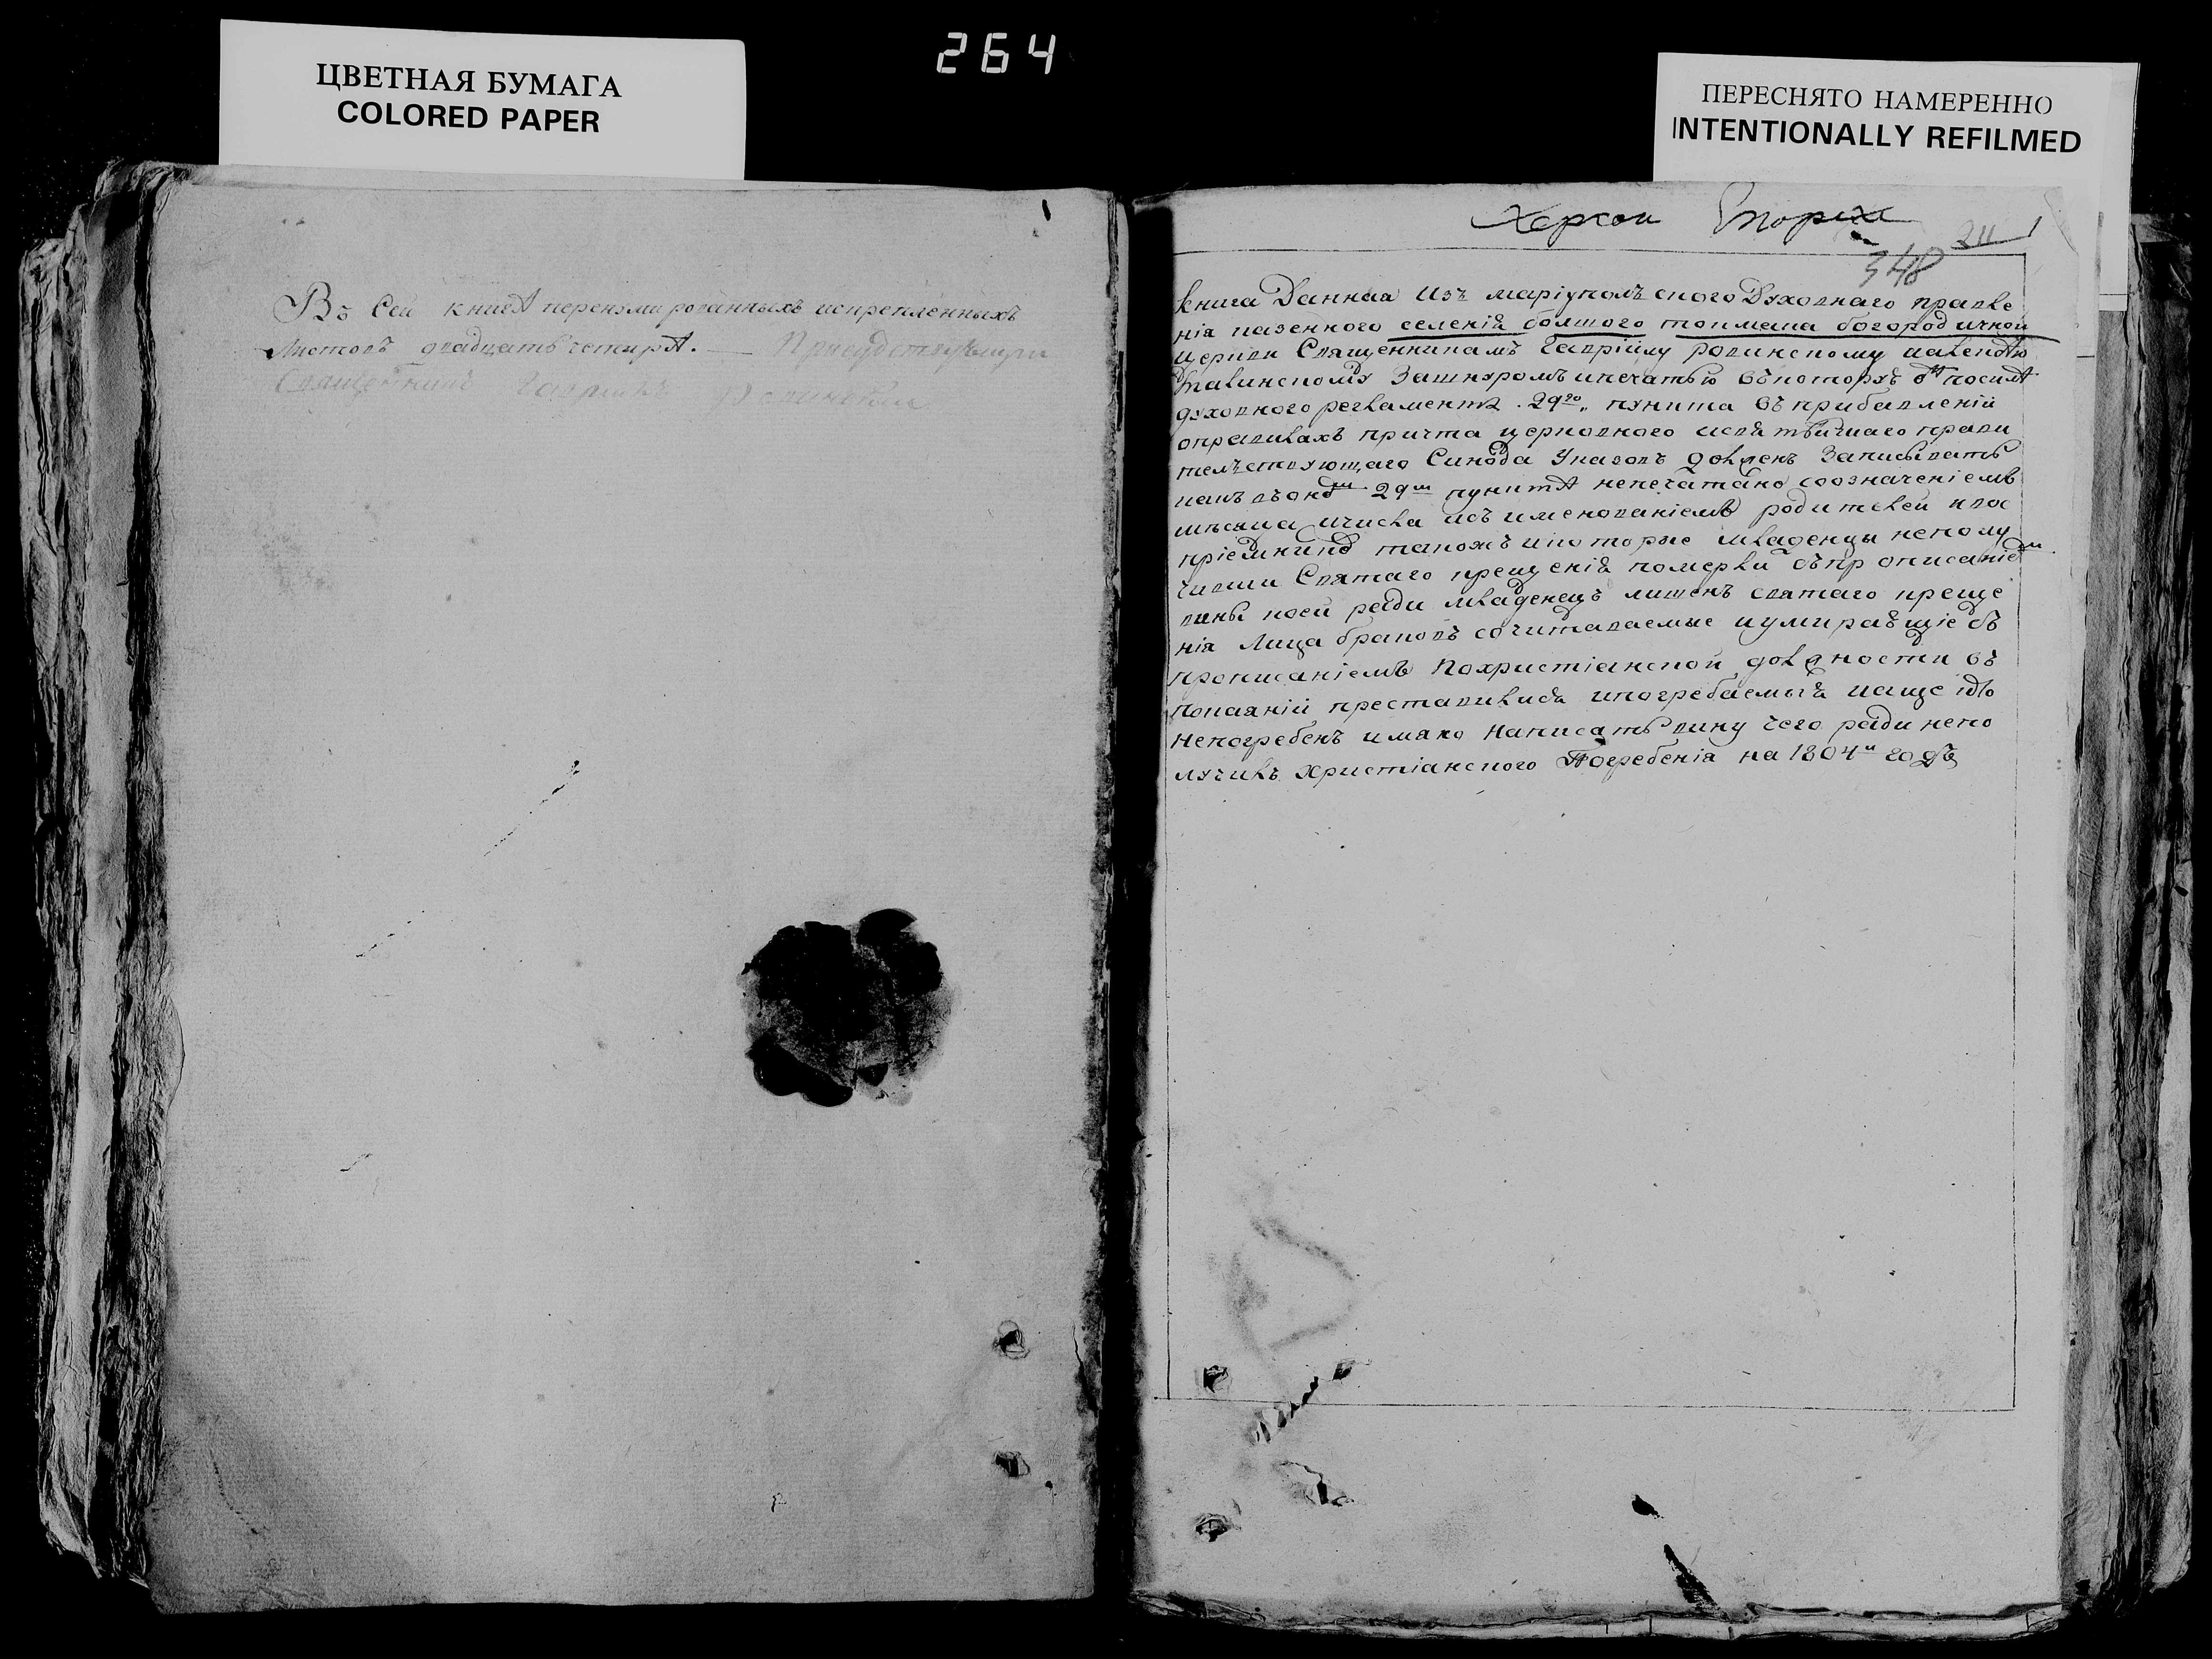 264
ЦВЕТНАЯ БУМАГА
COLORED PAPER
ПЕРЕСНЯТО НАМЕРЕННО
INTENTIONALLY REFILMED
Въ Сей книгѣ перенумированныхъ искрепленныхъ
листовъ двадцать четирѣ. — Присудствующъи
Священникъ Гавриилъ
Херсон
211 1
348
книга Данная Изъ маріуполъского Духовнаго правле
нія казенного селенія болшого токмака богородичной
церкви Священникамъ Гавріилу ровинскому иалексѣю
Зашнуромъ ипечатью въкоторую посилѣ
духовного регламента . 29го „ пункта въприбавленіи
оправилахъ причта церковного исвятѣйшаго прави
телъствующаго Синода Указовъ долженъ Записывать
какъ въоно 29м пунктѣ напечатано соозначеніемъ
мѣсяца ичисла исъименованіемъ родителей ивос
пріемниковъ такожъ икоторые младенцы неполу
чивши Святаго крещенія померли съпрописаніем
вины коей ради младенецъ лишенъ святаго креще
нія Лица браковъ сочитаваемые иумираѣщіе съ
прописаніемъ Похристіанской должности въ
покаяніи преставилися ипогребаемыя иаще кто
Непогребенъ имяно Написать вину чего ради непо
лучилъ христіанского Погребенія на 1804й годъ